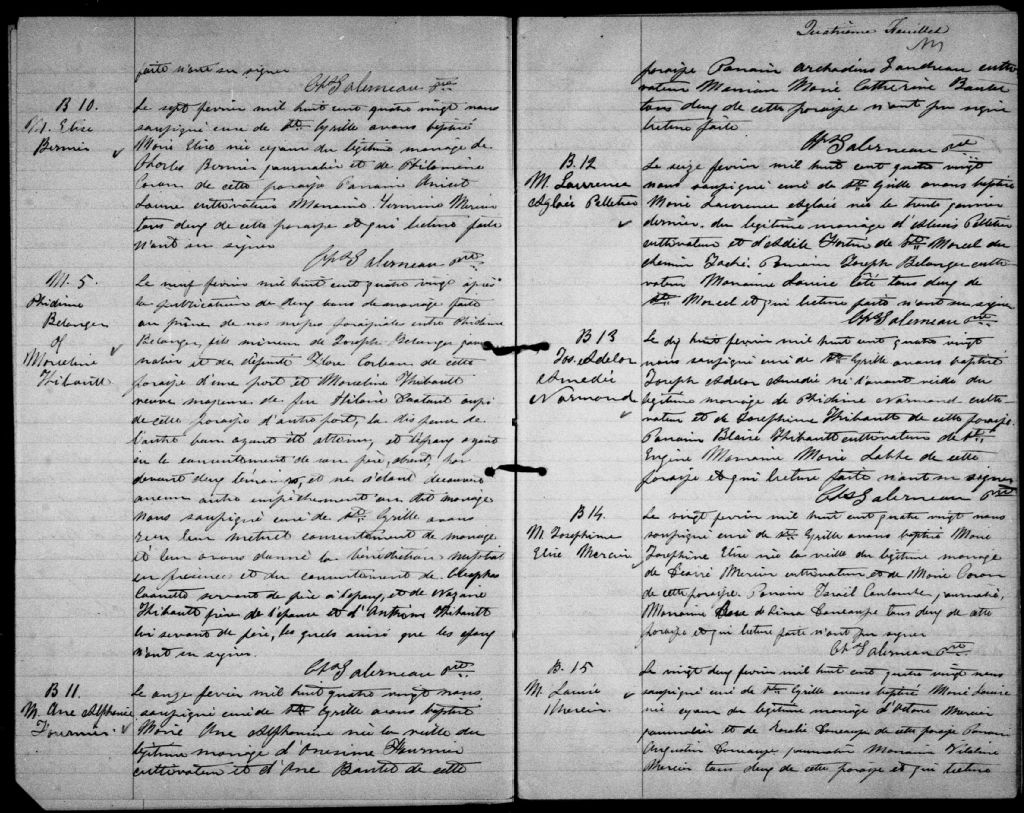 faite n'ont su signer
Chs Galerneau ptre
B 10.
M. Elise
Bernier
Le sept fevrier mil huit cent quatre vingt nous
soussigné curé de Ste Cyrille avons baptisé
Marie Elise née ce jour du légitime mariage de
Charles Bernier journalier et de Philomène
Caron de cette paroisse Parrain Anicet
cultivateur Marraine Mercier
tous deux de cette paroisse et qui lecture faite
n'ont su signer
Chs Galerneau ptre
M. 5.
Phidime
Belanger
&
Marceline
Thibault
Le neuf fevrier mil huit cent quatre vingt après
la publication de deux bans de mariage faite
au prône de nos messes paroissiales entre Phidime
Belanger, fils mineur de Joseph Belanger jour
nalier et de défunte Flore Corbeau de cette
paroisse d'une part et Marceline Thibault
veuve majeure de feu Hilaire aussi
de cette paroisse d'autre part, la dispense de
l'autre ban ayant été obtenu, et l'epoux ayant
eu le consentement de son père,
devant deux témoins, et ne s'étant découvert
aucun autre empêchement au dit mariage
Nous soussigné curé de Ste Cyrille avons
reçu leur mutuel consentement de mariage
et leur avons donné la bénédiction nuptiale
en présence et du consentement de Cléophas
servant de père à l'epoux, et de Nazaire
Thibault frère de l'epouse et d'Antoine Thibault
lui servant de père, lesquels ainsi que les epoux
n'ont su signer.
Chs Galerneau ptre
B 11.
M. Ane Alphonsine
Fournier.
Le onze fevrier mil huit quatre vingt nous
soussigné curé de Ste Cyrille avons baptisé
Marie Ane Alphonsine née la veille du
légitime mariage d'Onesime Fournier
cultivateur et d'Ane de cette
Quatrième Feuillet
paroisse Parrain Archadius Gaudreau culti-
vateur Marraine Marie Catherine
tous deux de cette paroisse n'ont pu signer
lecture faite
Chs Galerneau ptre
B. 12
M. Laurence
Aglaée Pelletier
Le seize fevrier mil huit cent quatre vingt
nous soussigné curé de Ste Cyrille avons baptisé
Marie Laurence Aglaée née le trente janvier
dernier. du legitime mariage d'Alexis Pelletier
cultivateur et d'Adèle Fortin de St Marcel du
chemin Taché. Parrain Joseph Belanger culti-
vateur Marraine Louise Côté tous deux de
St Marcel et qui lecture faite n'ont su signer
Chs Galerneau ptre
B 13
Jos. Adelor
Amedée
Normand
Le dix huit fevrier mil huit cent quatre vingt
nous soussigné curé de Ste Cyrille avons baptisé
Joseph Adelor Amedé né l'avant veille du
légitime mariage de Phidime Normand culti-
vateur et de Josephine Thibault de cette paroisse.
Parrain Blaise Thibault cultivateur de St
Eugène Marraine Marie Labbe de cette
paroisse et qui lecture faite n'ont su signer
Chs Galerneau ptre
B 14.
M. Josephine
Elise Mercier
Le vingt fevrier mil huit cent quatre vingt nous
soussigné curé de Ste Cyrille avons baptisé Marie
Josephine Elise née la veille du légitime mariage
de Mercier cultivateur et de Marie Caron
de cette paroisse. Parrain journalier,
Marraine tous deux de cette
paroisse et qui lecture faite n'ont pu signer
Chs Galerneau ptre
B. 15
M. Laurée
Mercier.
Le vingt deux fevrier mil huit cent quatre vingt nous
soussigné curé de Ste Cyrille avons baptisé Marie
née ce jour du legitime mariage d'Octave Mercier
journalier et de Rosalie de cette paroisse Parrain
Augustin journalier Marraine
Mercier tous deux de cette paroisse et qui lecture